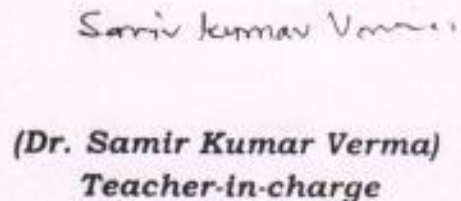 Samir Kumar Verma
(Dr. Samir Kumar Verma)
Teacher-in-charge